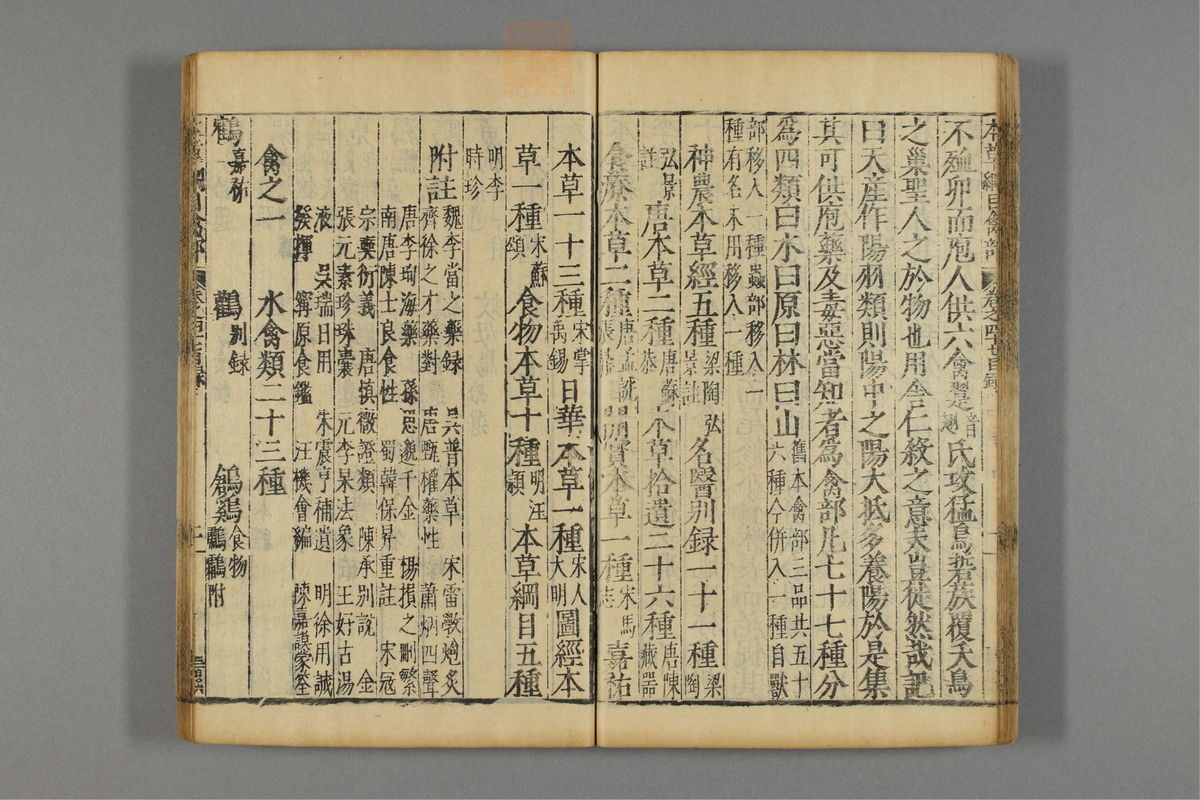 不殈卵而庖人供六禽翨氏攻猛鳥硩蔟覆夭鳥
之巢聖人之於物也用舍仁殺之意夫豈徒然哉記
曰天產作陽羽類則陽中之陽大抵多養陽於是集
其可供庖藥及毒惡當知者為禽部凡七十七種分
為四類曰水曰原曰林曰山舊本禽部三品共五十
六種今併入一種自獸
部移入一種蟲部移入一
種有名未用移入一種
神農本草經五種梁陶弘
景註名醫別録一十一種梁陶
弘景
註唐本草二種唐蘇
恭本草拾遺二十六種唐陳
藏器
食療本草二種唐孟詵
張鼎開寳本草一種宋馬
志嘉祐
本草一十三種宋掌
禹錫日華本草一種宋人
大明圖經本
草一種宋蘇
頌食物本草十種明汪
穎本草綱目五種
明李
時珍
附註魏李當之藥録 吳普本草 宋雷斆炮炙
齊徐之才藥對 唐甄權藥性 蕭炳四聲
唐李珣海藥 孫思邈千金 楊損之刪繁
南唐陳士良食性 蜀韓保昇重註 宋寇
宗奭衍義 唐慎微證類 陳承別說 金
張元素珍珠囊 元李杲法象 王好古湯
液 吳瑞日用 朱震亨補遺 明徐用誠
發揮 寗原食鑑 汪機會編 陳嘉謨蒙筌
禽之一 水禽類二十三種
鶴嘉祐 鸛別録 鶬鷄食物 鸘鸘附